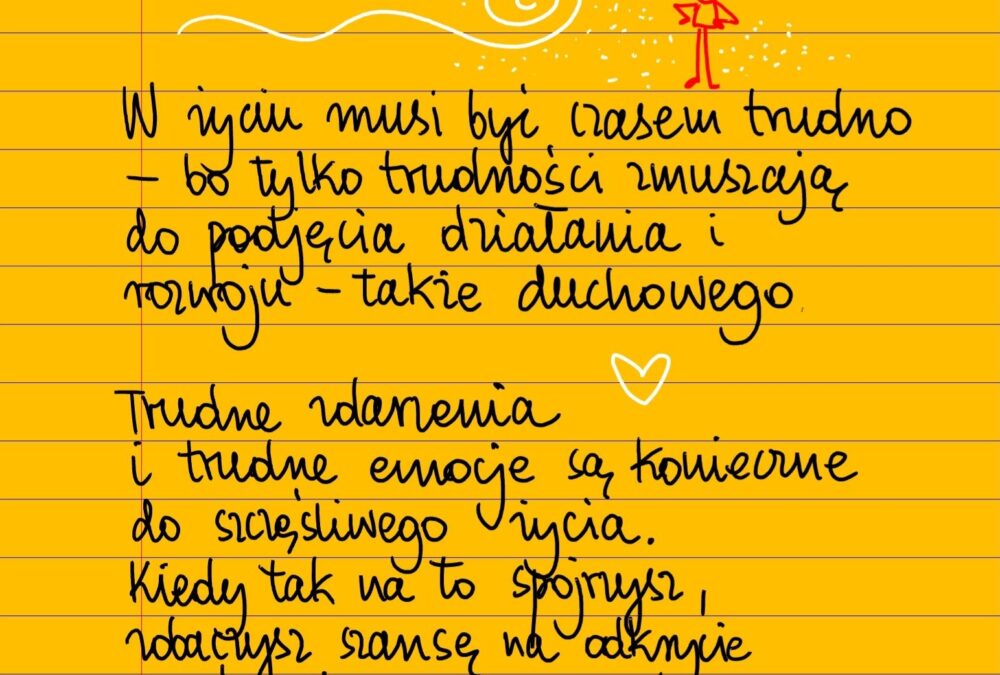 W życiu musi być czasem trudno
– bo tylko trudności zmuszają
do podjęcia działania i
rozwoju – także duchowego.
Trudne zdarzenia
i trudne emocje są konieczne
do szczęśliwego życia.
Kiedy tak na to spojrzysz,
zobaczysz szansę na odkrycie